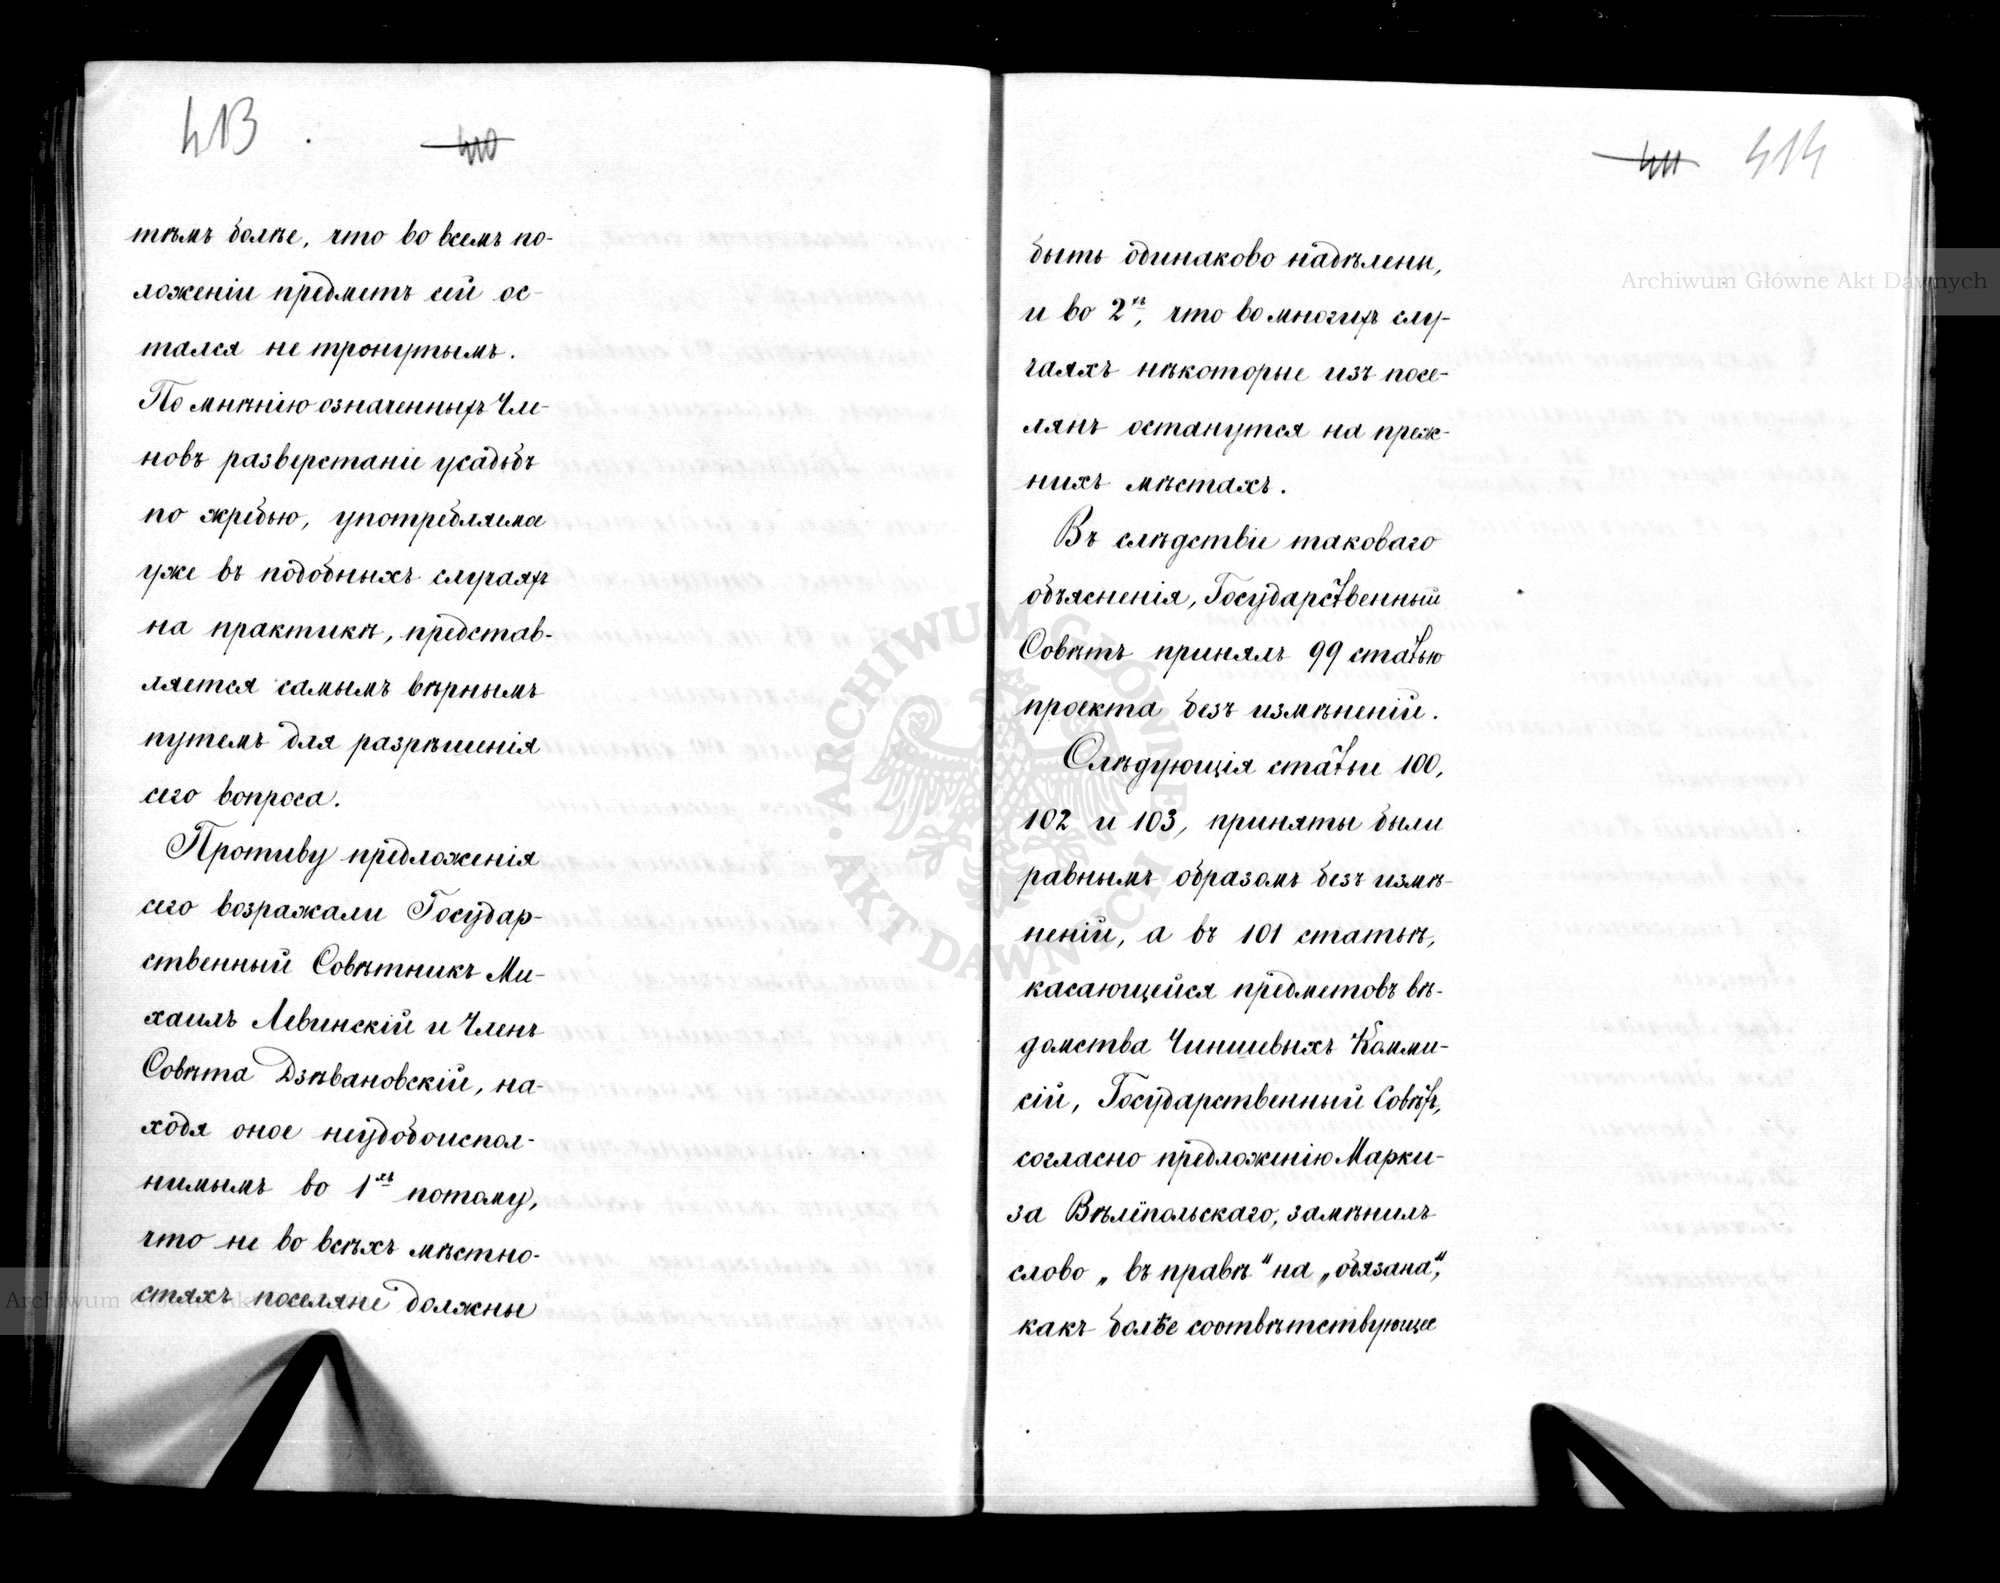 413
410
тѣмъ болѣе, что во всемъ по-
ложеніи предметъ сей ос-
тался не тронутымъ.
По мнѣнію означенныхъ Чле-
новъ разверстаніе усадьбъ
по жребью, употребляема
уже въ подобныхъ случаяхъ
на практикѣ, представ-
ляется самымъ вѣрнымъ
путемъ для разрѣшенія
сего вопроса.
Противу предложенія
сего возражали Государ-
ственный Совѣтникъ Ми-
хаилъ Левинскій и Членъ
Совѣта Дзѣвановскій, на-
ходя оное неудобоиспол-
нимымъ во 1хъ потому,
что не во всѣхъ мѣстно-
стяхъ поселяне должны
411 414
быть одинаково надѣлены,
и во 2хъ, что во многихъ слу-
чаяхъ нѣкоторые изъ посе-
лянъ останутся на преж-
нихъ мѣстахъ.
Въ слѣдствіе таковаго
объясненія, Государственный
Совѣтъ принялъ 99 статью
проекта безъ измѣненій.
Слѣдующія статьи 100,
102 и 103, приняты были
равнымъ образомъ безъ измѣ-
неній, а въ 101 статьѣ,
касающейся предметовъ вѣ-
домства Чиншевыхъ Комми-
сій, Государственный Совѣтъ,
согласно предложенію Марки-
за Вѣлiопольскаго, замѣнилъ
слово „въ правѣ" на „обязана",
какъ болѣе соотвѣтствующее
Archiwum Główne Akt Dawnych
Archiwum Główne Akt Dawnych
ARCHIWUM GŁÓWNE AKT DAWNYCH